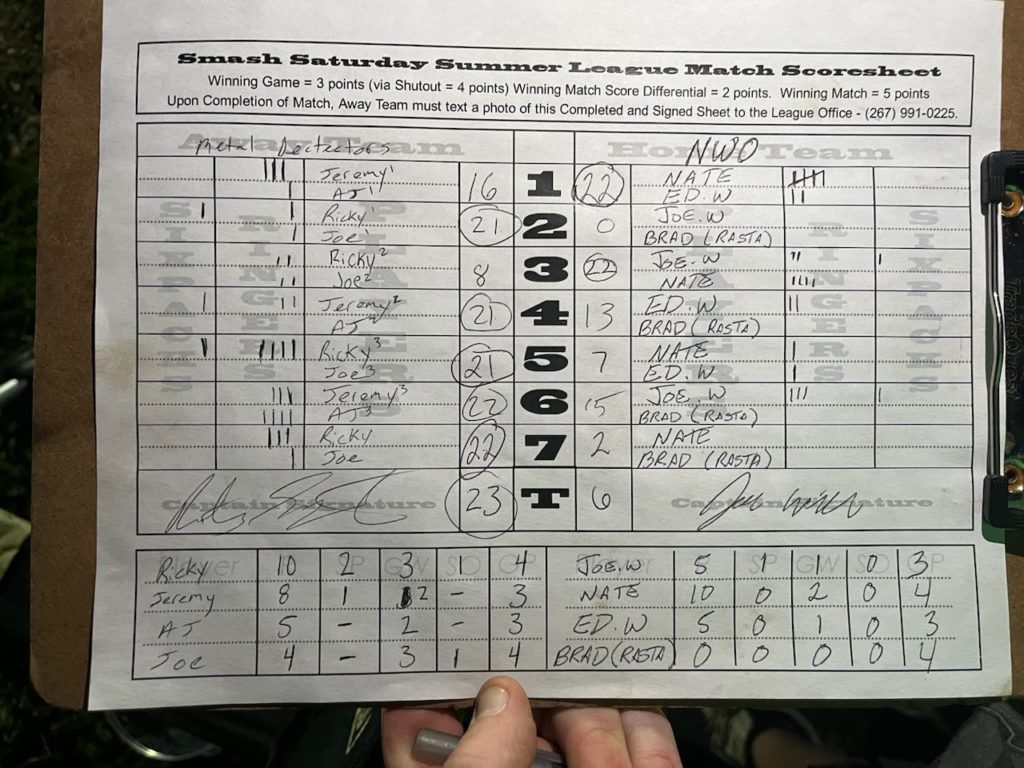 Smash Saturday Summer League Match Scoresheet
Winning Game = 3 points (via Shutout = 4 points) Winning Match Score Differential = 2 points. Winning Match = 5 points
Upon Completion of Match, Away Team must text a photo of this Completed and Signed Sheet to the League Office - (267) 991-0225.
Away Team Home Team
Metal Detectors NWO
Jeremy1 16 1 22 NATE
AJ1 ED.W
Ricky1 21 2 0 JOE.W
Joe1 BRAD (RASTA)
Ricky2 8 3 22 JOE.W
Joe2 NATE
Jeremy2 21 4 13 ED.W
AJ2 BRAD (RASTA)
Ricky3 21 5 7 NATE
Joe3 ED.W
Jeremy3 22 6 15 JOE.W
AJ3 BRAD (RASTA)
Ricky 22 7 2 NATE
Joe BRAD (RASTA)
23 T 6
Captain Signature Captain Signature
SIXPACKS RINGERS PLAYERS PLAYERS RINGERS SIXPACKS
Player SP GW SO GP SP GW SO GP
Ricky 10 2 3 1 4 JOE.W 5 1 1 0 3
Jeremy 8 1 2 - 3 NATE 10 0 2 0 4
AJ 5 - 2 - 3 ED.W 5 0 1 0 3
Joe 4 - 3 1 4 BRAD (RASTA) 0 0 0 0 4